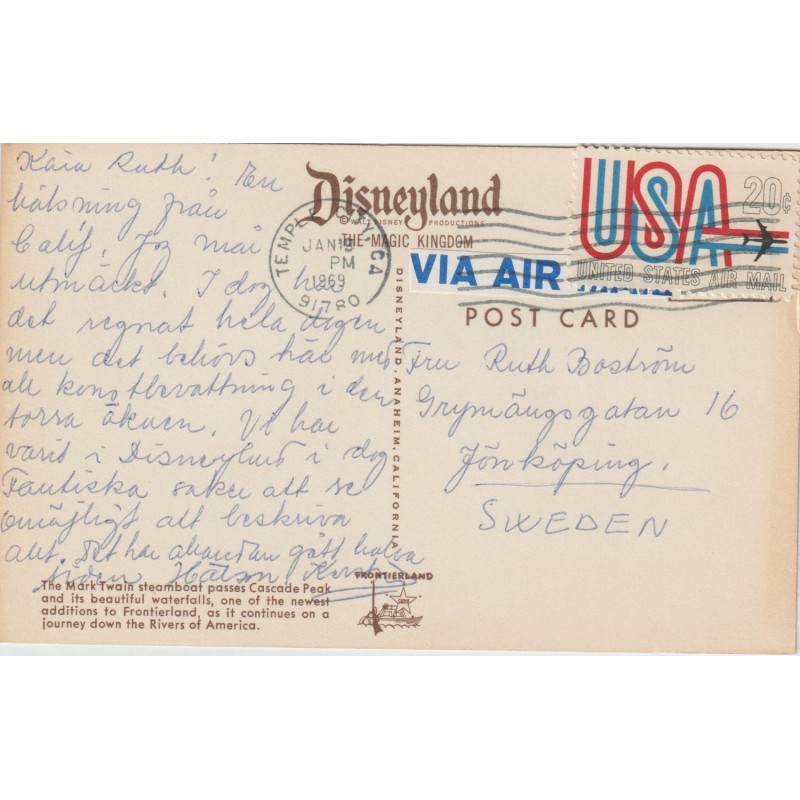 Kära Ruth! En
hälsning från
Calif. Jag mår
utmärkt. I dag har
det regnat hela dagen
men det behövs här med
all konstbevattning i den
torra öknen. Vi har
varit i Disneyland i dag
Fantiska saker att se
omöjligt att beskriva
allt. Det har gått halva
tiden Hälsn. Kerstin
The Mark Twain steamboat passes Cascade Peak
and its beautiful waterfalls, one of the newest
additions to Frontierland, as it continues on a
journey down the Rivers of America.
Disneyland
© WALT DISNEY PRODUCTIONS
THE MAGIC KINGDOM
TEMPLE CITY, CA
JAN 19
PM
1969
91780
VIA AIR
USA 20¢
UNITED STATES AIR MAIL
POST CARD
DISNEYLAND, ANAHEIM, CALIFORNIA
Fru Ruth Boström
Grymängsgatan 16
Jönköping.
SWEDEN
FRONTIERLAND